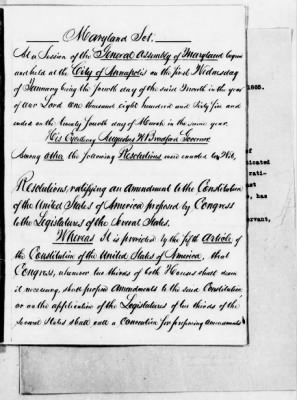 Maryland Sct:
At a Session of the General Assembly of Maryland begun
and held at the City of Annapolis on the first Wednesday
of January being the fourth day of the said Month in the year
of our Lord one thousand eight hundred and Sixty five and
ended on the twenty fourth day of March in the same year.
His Excellency Augustus W. Bradford Governor
Among other the following Resolutions were enacted to Wit,
Resolutions, ratifying an Amendment to the Constitution
of the United States of America proposed by Congress
to the Legislatures of the Several States.
Whereas It is provided by the fifth Article of
the Constitution of the United States of America, that
Congress, whenever two thirds of both Houses shall deem
it necessary, shall propose Amendments to the said Constitution
or on the application of the Legislatures of two thirds of the
several States shall call a Convention for proposing amendments
1865.
of
icated
rati-
, has
rvant,